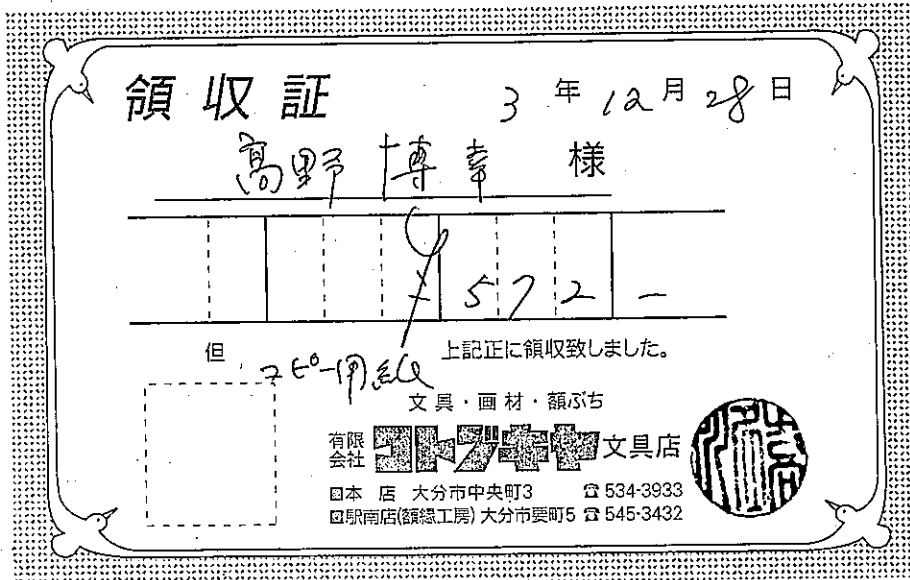 領収証 3年12月28日
高野博幸 様
¥572-
但 コピー用紙 上記正に領収致しました。
文具・画材・額ぶち
有限会社 コトブキヤ 文具店
本店 大分市中央町3 ☎534-3933
駅南店(額縁工房) 大分市要町5 ☎545-3432